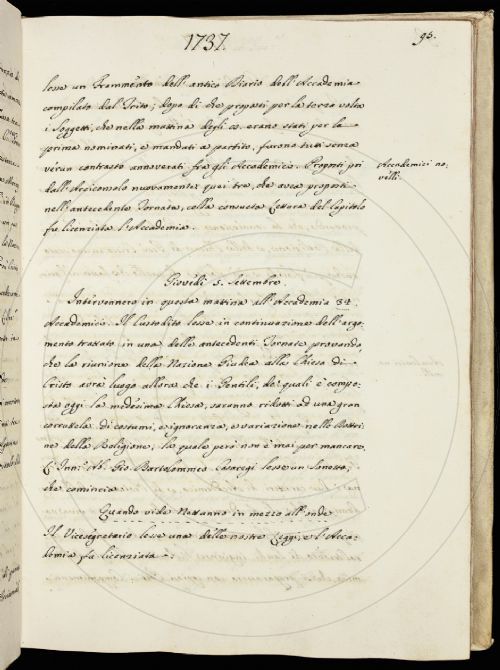 1737.
95.
lesse un Frammento dell' antico Diario dell' Accademia
compilato dal Trito; dopo di che proposti per la terza volta
i Soggetti, che nella mattina degli 20. erano stati per la
prima nominati, e mandati a partito, furono tutti senza
verun contrasto annoverati fra gli Accademici. Proposti poi
dall' Arciconsolo nuovamente quei tre, che avea proposti
nell' antecedente Tornata, colla consueta Lettura del Capitolo
fu licenziata l' Accademia.
Accademici no-
velli.
Giovedì 5. Settembre.
Intervennero in questa mattina all' Accademia 34.
Accademici. Il Custodito lesse in continuazione dell' argo-
mento trattato in una delle antecedenti Tornate provando,
che la riunione della Nazione Giudea alla Chiesa di
Cristo avrà luogo allora che i Gentili, de' quali è compo-
sta oggi la medesima Chiesa, saranno ridotti ad una gran
corruttela di costumi, e ignoranza, e variazione nelle Dottri-
ne della Religione; la quale però non è mai per mancare.
L' Inn.º Ab. Gio. Bartolommeo Casaregi lesse un Sonetto,
che comincia
Quando vide Nettunno in mezzo all' onde
Il Vicesegretario lesse una delle nostre Leggi, e l' Acca-
demia fu licenziata.